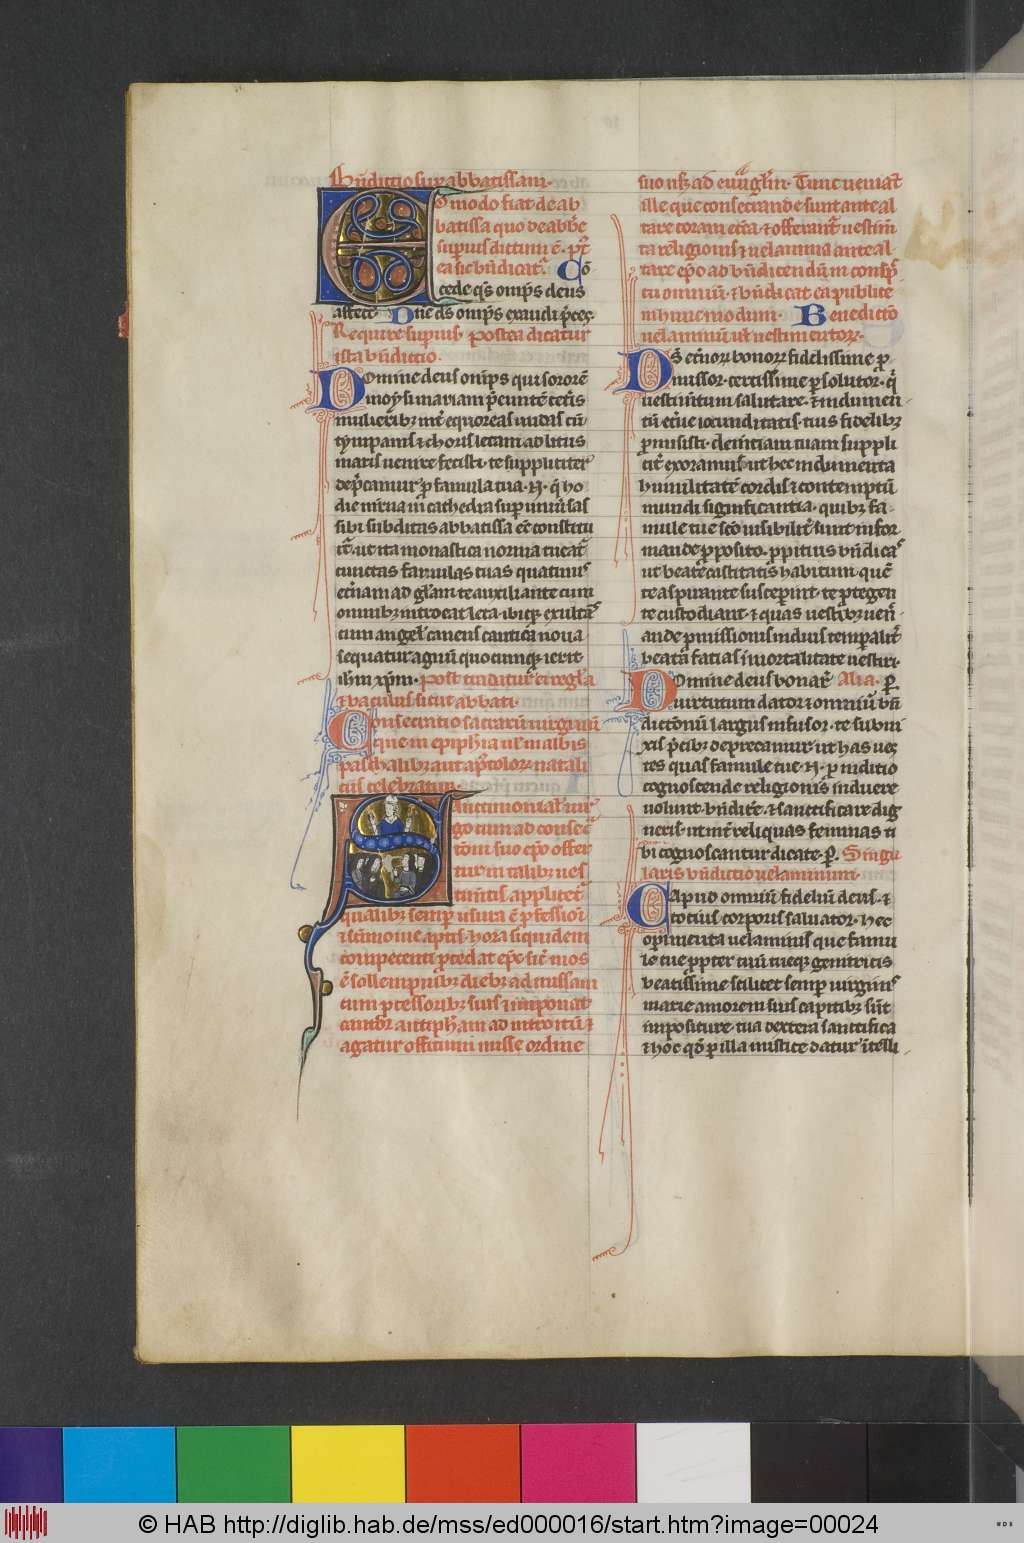 Bn̄dictio sup̱ abbatissam.
Eo modo fiat de ab
batissa quo de abb̄e
sup̱ius dictum ē. p̄t̾
ea sic bn̄dicat̾. Cō
cede qs̄ omp̄s deus
affect. Dne ds̄ omp̄s exaudi p̄ces.
Require sup̱ius. Postea dicatur
ista bn̄dictio.
Domine deus omp̄s qui sororē
moysi mariam p̄euntē cet̾is
mulierib; int̾ equoreas undas cū
tympanis & choris letam ad litus
maris uenire fecisti. te suppliciter
dep̄camur p̱ famula tua .N. q̄ ho
die mat̾na in cathedra sup̱ uniu̾sas
sibi subditas abbatissa ēē constitu
it̾. ut ita monastica norma tueat̾
cunctas famulas tuas quatinus
et̾nam ad gl̄am te auxiliante cum
omnib; introeat leta. ibiq; exultās
cum angel̄ canens cantica noua
sequatur agnū quocunq; ierit.
ih̄m xp̄m. Post traditur ei regl̄a
& baculus sicut abbati.
Consecratio sacrarū uirginū
que in epiph̄ia ul̄ in albis
paschalib; aut ap̄tolor̄ natali
ciis celebratur.
Sanctimonial̄ uir
go cum ad consec̄
tōm suo ep̄o offer
tur in talib; ues
tim̄tis applicet̾
qualib; semp̱ usura ē p̱fessiōi
& sc̄imonie aptis. hora siquidem
competenti p̱cedat ep̄c sic̄ mos
ē sollempnib; dieb; ad missam
cum p̱cessorib; suis & imponat
cantor antiph̄am ad introitū &
agatur officium misse ordine
suo usq; ad euuḡlm. Tunc ueniāt
ille que consecrande sunt ante al
tare coram ecc̄a. & offerant̾ uestim̄
ta religionis & uelamina ante al
tare ep̄o ad bn̄dicendū in consp̄
tu omniū. & bn̄dicat ea publice
in hunc modum. Benedictō
uelaminū ul̄ uestimentor̄.
Ds̄ et̾nor̄ bonor̄ fidelissime p̱
missor. certissime p̱solutor. q̄
uestim̄tum salutare. & indumen
tū et̾ne iocunditatis. tuis fidelib;
p̱misisti. clem̄tiam tuam suppli
cit̾ exoramus. ut hec indumenta
humilitatē cordis & contemptū
mundi significantia. quib; fa
mule tue sc̄o uisibilit̾ sunt infor
mande p̱posito. p̱pitius bn̄dicas
ut beate castitatis habitum quē
te aspirante susceperint. te p̱tegen
te custodiant. & quas uestib; uen̄
ande p̱missionis induis temp̱alit̾
beata facias inmortalitate uestiri.
Domine deus bonar̄ Alia. p̱
uirtutum dator & omniū bn̄
dictōnū largus infusor. te subni
xis p̄cib; deprecamur. ut has ues
tes quas famule tue .N. p̱ indicio
cognoscende religionis induere
uolunt. bn̄dicē & sanctificare dig
neris. ut int̾ reliquas feminas ti
bi cognoscantur dicate. p̱. Singu
laris bn̄dictio uelaminum.
Caput omniū fideliū deus. &
totius corporis saluator. hec
op̱imenta uelaminis que famu
le tue p̱pter tuū tueq; genitricis
beatissime scilicet semp̱ uirginis
marie amorem suis capitib; sūt
imposture. tua dextera sanctifica
& hoc qd̄ p̱ illa mistice datur intelli
© HAB http://diglib.hab.de/mss/ed000016/start.htm?image=00024